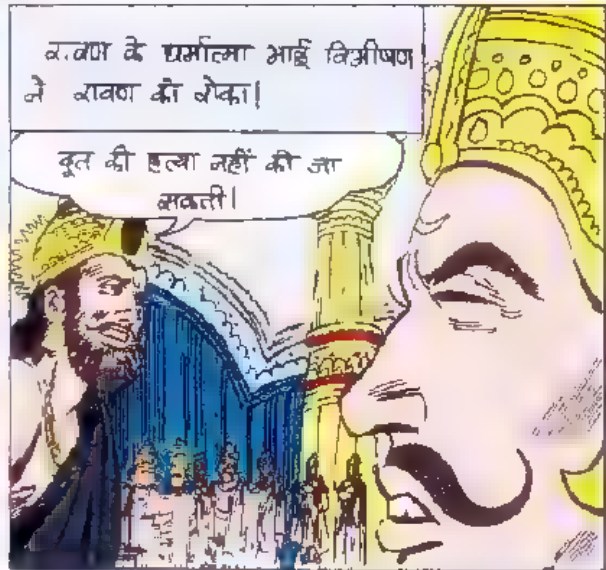 रावण के धर्मात्मा भाई विभीषण
ने रावण को रोका!
दूत की हत्या नहीं की जा
सकती!